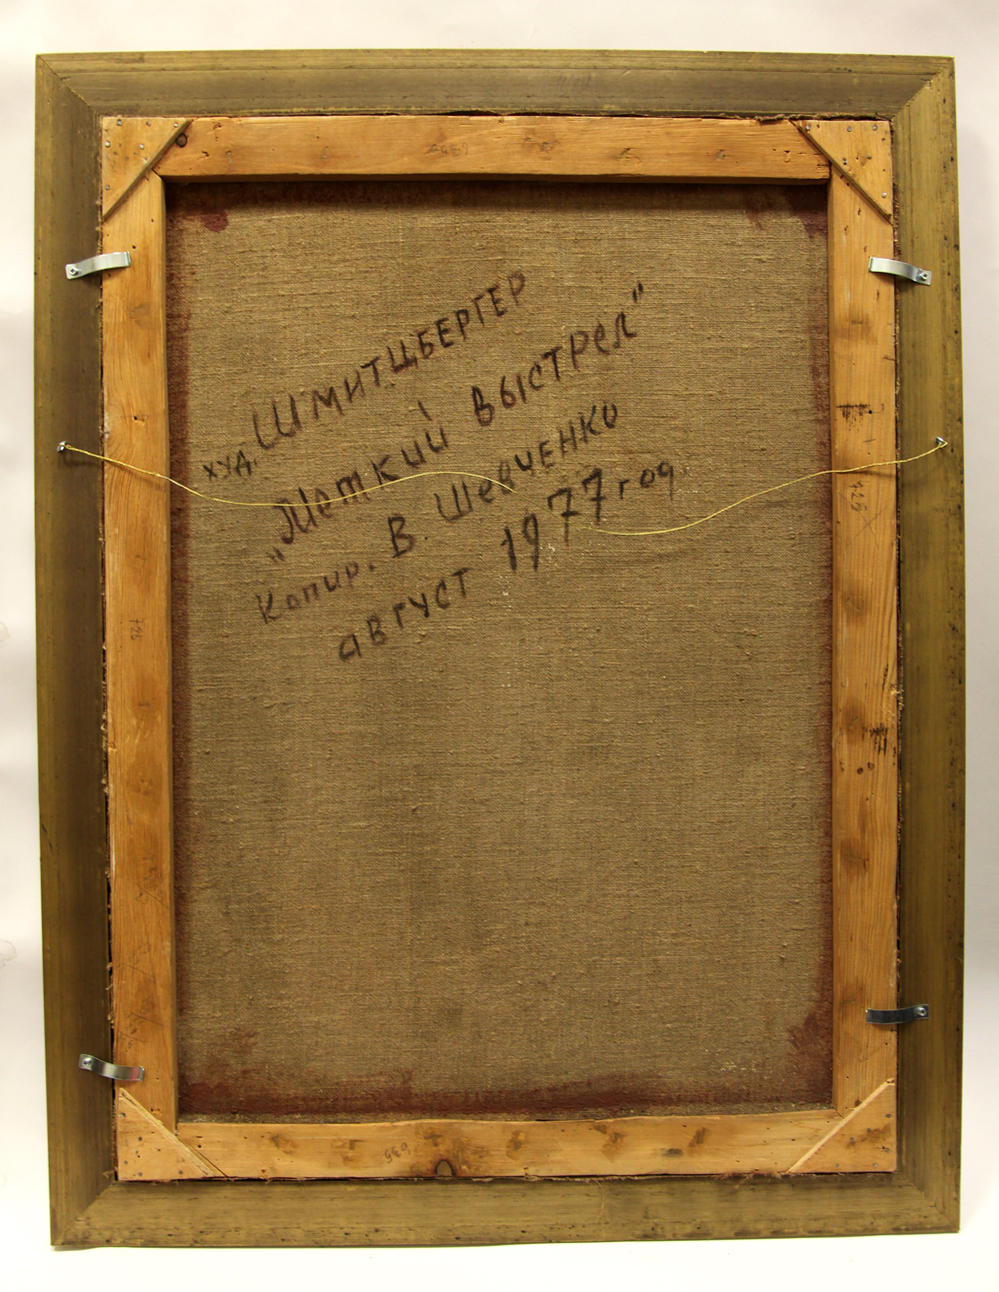 худ. ШМИТЦБЕРГЕР
„Меткий выстрел"
Копир. В. Шевченко
август 1977 год
725
725
635